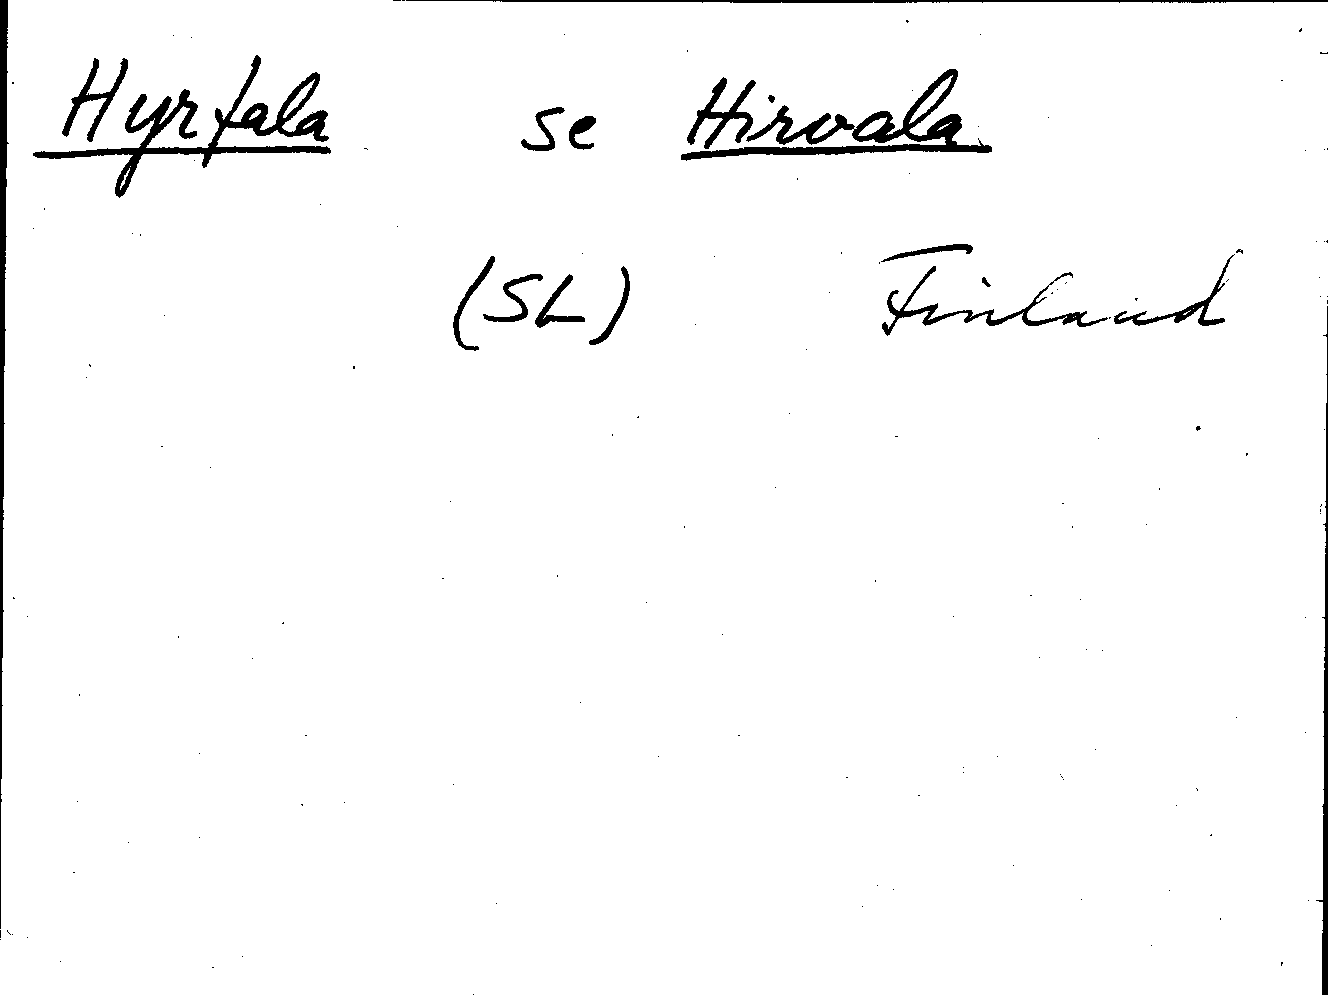 Hyrfala se Hirvala
(SL) Finland